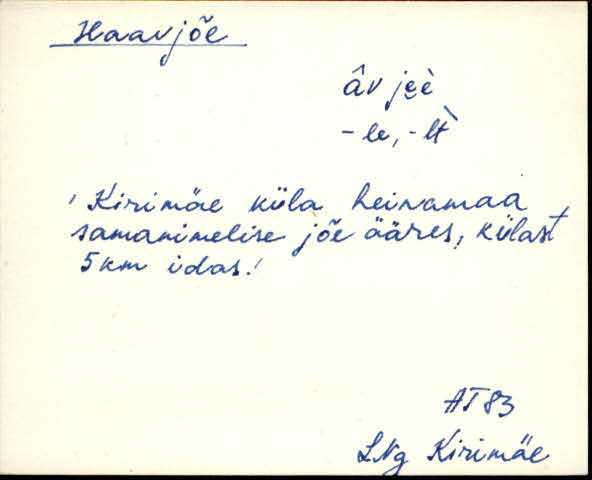 Haavjõe
âv je̬è
-le, -lt
'Kirimäe küla heinamaa
samanimelise jõe ääres, külast
5 km idas.'
AT 83
LNg Kirimäe